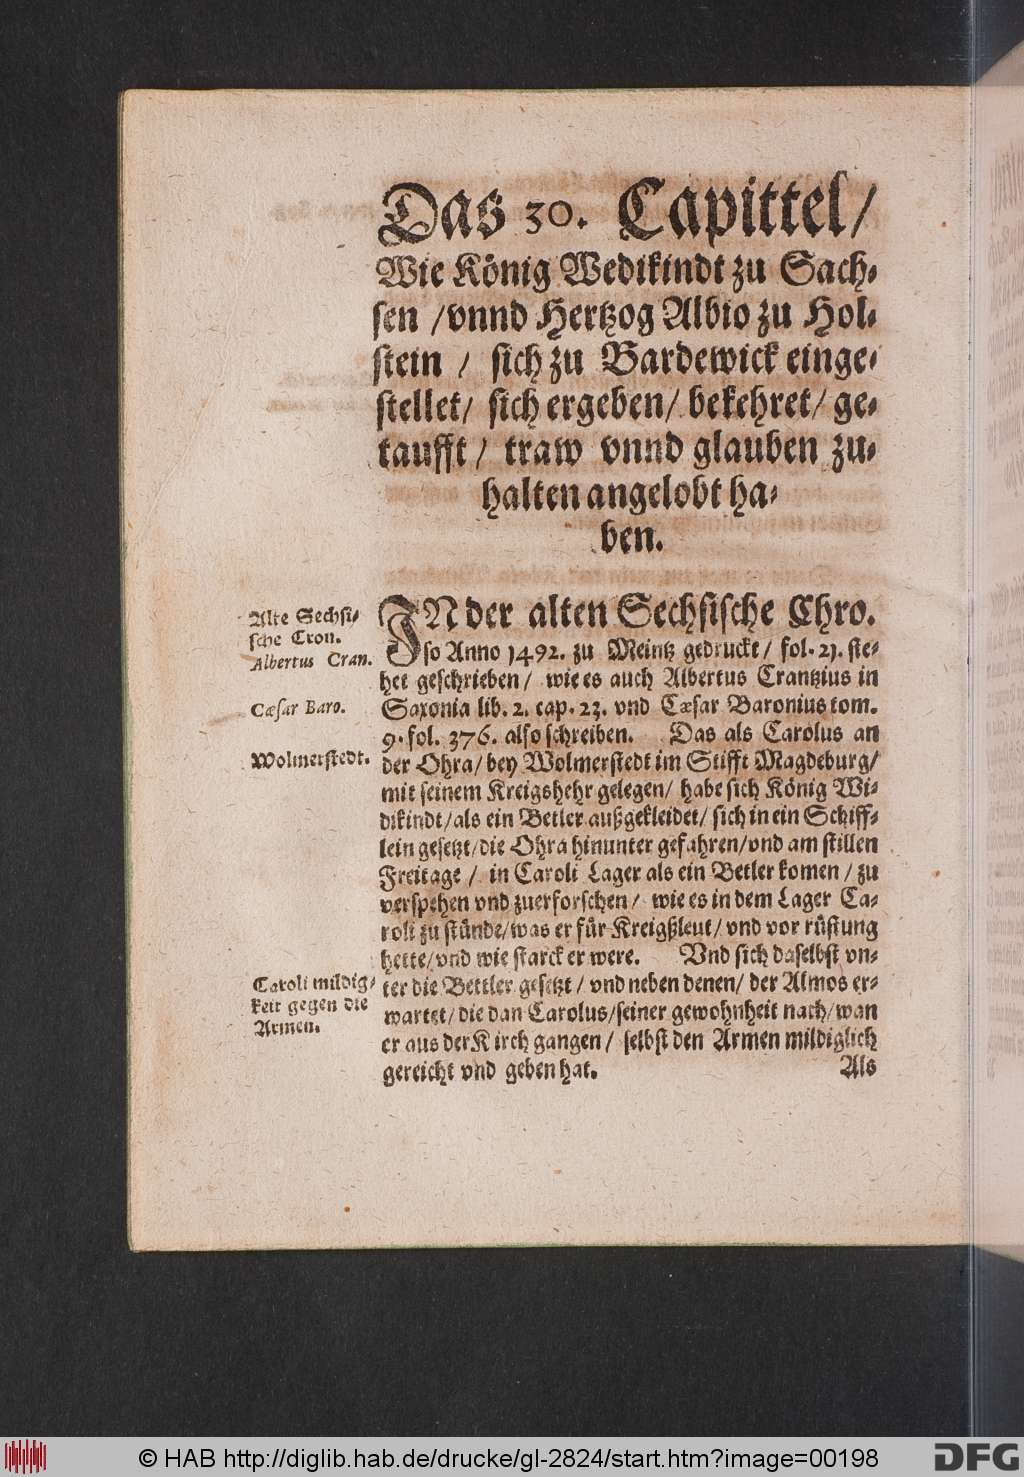 Das 30. Capittel/
Wie König Wedikindt zu Sach-
sen /vnnd Hertzog Albio zu Hol-
stein / sich zu Bardewick einge-
stellet/ sich ergeben/ bekehret/ ge-
taufft/ traw vnnd glauben zu-
halten angelobt ha-
ben.
Alte Sechsi-
sche Cron.
Albertus Cran.
Cæsar Baro.
Wolmerstedt.
IN der alten Sechsische Chro.
so Anno 1492. zu Meintz gedruckt/ fol. 21. ste-
het geschrieben/ wie es auch Albertus Crantzius in
Saxonia lib. 2. cap. 23. vnd Cæsar Baronius tom.
9. fol. 376. also schreiben. Das als Carolus an
der Ohra/ bey Wolmerstedt im Stifft Magdeburg/
mit seinem Kreigshehr gelegen/ habe sich König Wi-
dikindt/als ein Betler außgekleidet/ sich in ein Schiff-
lein gesetzt/die Ohra hinunter gefahren/vnd am stillen
Freitage / in Caroli Lager als ein Betler komen / zu
verspehen vnd zuerforschen/ wie es in dem Lager Ca-
roli zu stünde/was er für Kreigßleut/ vnd vor rüstung
hette/vnd wie starck er were. Vnd sich daselbst vn-
ter die Bettler gesetzt/ vnd neben denen/ der Almos er-
wartet/ die dan Carolus/seiner gewohnheit nach/wan
er aus der Kirch gangen/ selbst den Armen mildiglich
gereicht vnd geben hat.
Als
Caroli mildig-
keit gegen die
Armen.
© HAB http://diglib.hab.de/drucke/gl-2824/start.htm?image=00198
DFG